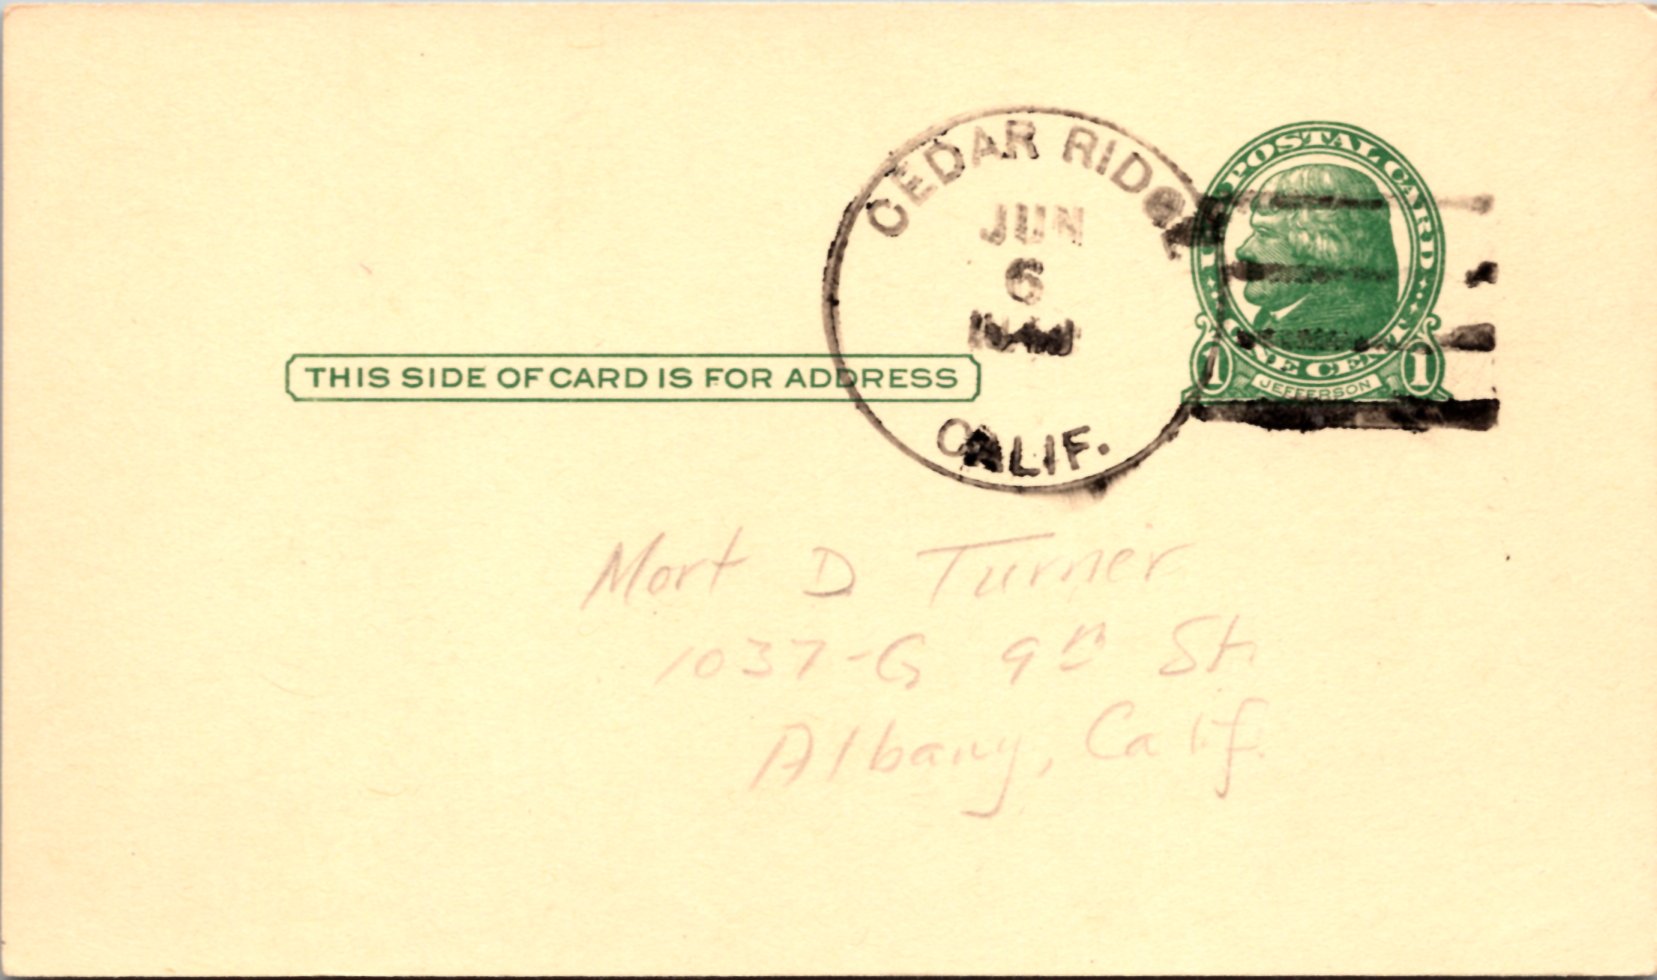 CEDAR RIDGE
JUN
6
CALIF.
U.S. POSTAL CARD
ONE CENT
1 JEFFERSON 1
THIS SIDE OF CARD IS FOR ADDRESS
Mort D Turner
1037-G 9th St.
Albany, Calif.